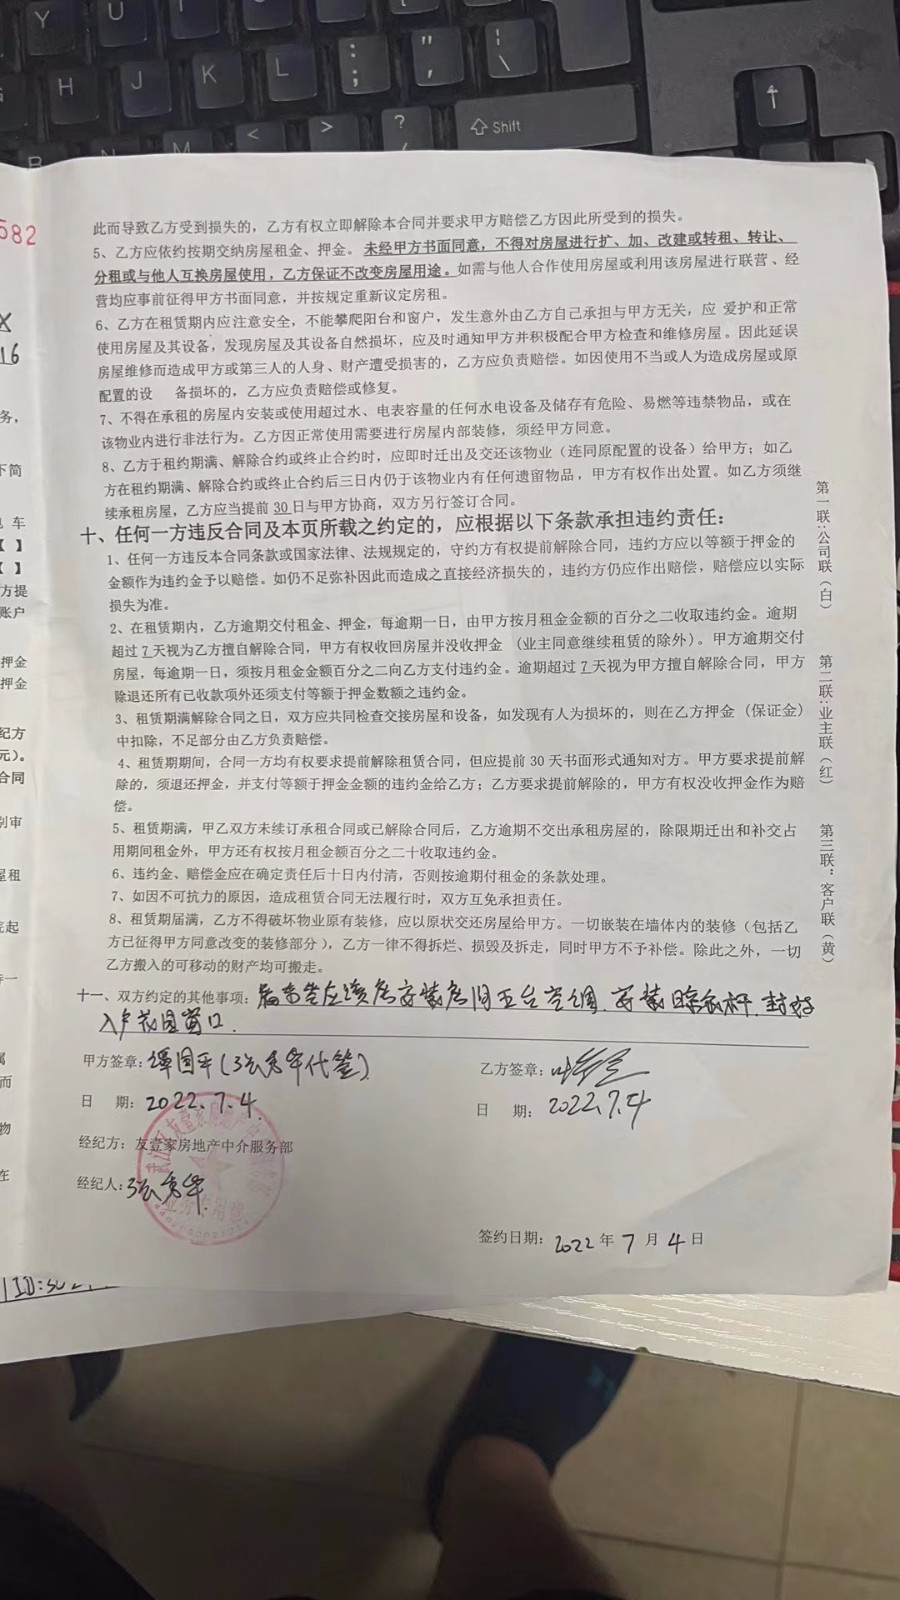 Y U I
H J K L : ; " ' | \
< > ? / Shift ↑
582
X
16
务,
下简
电 车
【 】
【 】
方提
账户
押金
押金
纪方
元)。
合同
别审
屋租
起
一
属
而
物
在
此而导致乙方受到损失的,乙方有权立即解除本合同并要求甲方赔偿乙方因此所受到的损失。
5、乙方应依约按期交纳房屋租金、押金。未经甲方书面同意,不得对房屋进行扩、加、改建或转租、转让、
分租或与他人互换房屋使用,乙方保证不改变房屋用途。如需与他人合作使用房屋或利用该房屋进行联营、经
营均应事前征得甲方书面同意,并按规定重新议定房租。
6、乙方在租赁期内应注意安全,不能攀爬阳台和窗户,发生意外由乙方自己承担与甲方无关,应 爱护和正常
使用房屋及其设备,发现房屋及其设备自然损坏,应及时通知甲方并积极配合甲方检查和维修房屋。因此延误
房屋维修而造成甲方或第三人的人身、财产遭受损害的,乙方应负责赔偿。如因使用不当或人为造成房屋或原
配置的设 备损坏的,乙方应负责赔偿或修复。
7、不得在承租的房屋内安装或使用超过水、电表容量的任何水电设备及储存有危险、易燃等违禁物品,或在
该物业内进行非法行为。乙方因正常使用需要进行房屋内部装修,须经甲方同意。
8、乙方于租约期满、解除合约或终止合约时,应即时迁出及交还该物业(连同原配置的设备)给甲方;如乙
方在租约期满、解除合约或终止合约后三日内仍于该物业内有任何遗留物品,甲方有权作出处置。如乙方须继
续承租房屋,乙方应当提前30日与甲方协商,双方另行签订合同。
十、任何一方违反合同及本页所载之约定的,应根据以下条款承担违约责任:
1、任何一方违反本合同条款或国家法律、法规规定的,守约方有权提前解除合同,违约方应以等额于押金的
金额作为违约金予以赔偿。如仍不足弥补因此而造成之直接经济损失的,违约方仍应作出赔偿,赔偿应以实际
损失为准。
2、在租赁期内,乙方逾期交付租金、押金,每逾期一日,由甲方按月租金金额的百分之二收取违约金。逾期
超过7天视为乙方擅自解除合同,甲方有权收回房屋并没收押金 (业主同意继续租赁的除外)。甲方逾期交付
房屋,每逾期一日,须按月租金金额百分之二向乙方支付违约金。逾期超过7天视为甲方擅自解除合同,甲方
除退还所有已收款项外还须支付等额于押金数额之违约金。
3、租赁期满解除合同之日,双方应共同检查交接房屋和设备,如发现有人为损坏的,则在乙方押金(保证金)
中扣除,不足部分由乙方负责赔偿。
4、租赁期期间,合同一方均有权要求提前解除租赁合同,但应提前30天书面形式通知对方。甲方要求提前解
除的,须退还押金,并支付等额于押金金额的违约金给乙方;乙方要求提前解除的,甲方有权没收押金作为赔
偿。
5、租赁期满,甲乙双方未续订承租合同或已解除合同后,乙方逾期不交出承租房屋的,除限期迁出和补交占
用期间租金外,甲方还有权按月租金额百分之二十收取违约金。
6、违约金、赔偿金应在确定责任后十日内付清,否则按逾期付租金的条款处理。
7、如因不可抗力的原因,造成租赁合同无法履行时,双方互免承担责任。
8、租赁期届满,乙方不得破坏物业原有装修,应以原状交还房屋给甲方。一切嵌装在墙体内的装修(包括乙
方已征得甲方同意改变的装修部分),乙方一律不得拆烂、损毁及拆走,同时甲方不予补偿。除此之外,一切
乙方搬入的可移动的财产均可搬走。
十一、双方约定的其他事项: 安装房间五台空调.安装晾衣杆.封好
入户花园窗口.
甲方签章:谭国平(张秀华代签)
日 期:2022.7.4.
乙方签章:
日 期:2022.7.4
经纪方:友壹家房地产中介服务部
经纪人:张秀华
业务专用章
签约日期:2022年7月4日
第一联:公司联(白)
第二联:业主联(红)
第三联:客户联(黄)